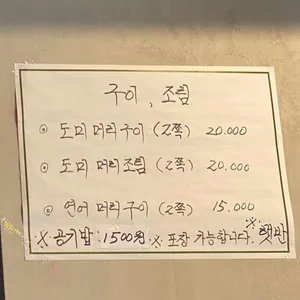 구이, 조림
◎ 도미 머리 구이 (2쪽) 20.000
◎ 도미 머리 조림 (2쪽) 20.000
◎ 연어 머리 구이 (2쪽) 15.000
※ 공기밥 : 1500원 ※ 포장 가능합니다 ※ 햇반